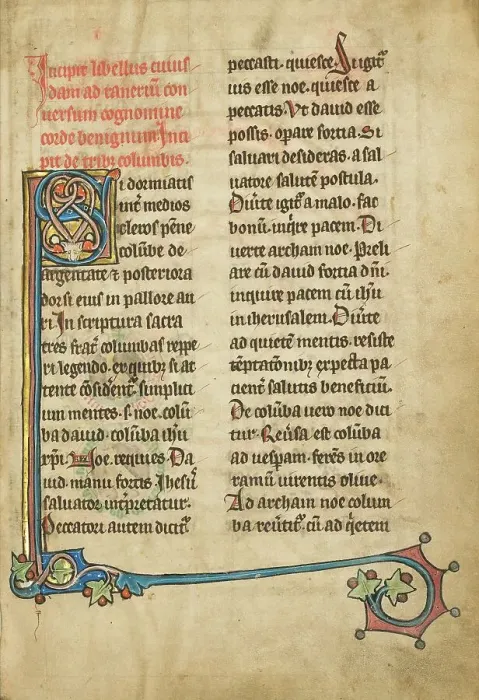 Incipit libellus cuius
dam ad raneriū con
versum cognomine
corde benignum Inci
pit de tribꝫ columbis.
i dormiatis
int̄ medios
cleros pēne
colūbe de
argentate ⁊ posteriora
dorsi eius in pallore au
ri. In scriptura sacra
tres frat̄ columbas reppe
ri legendo. ex quibꝫ si at
tente cōsident̄. simplici
um mentes. s. noe. colū
ba david. columba ihū
xp̄i. Noe. requies. Da
uid. manu fortis. Ihesus
saluator int̄pretatur.
Peccatori autem dicit̄
peccasti. quiesce. Si igit̄
ius esse noe. quiesce a
peccatis. Vt dauid esse
possis. opare fortia. Si
saluari desideras. a sal
uatore salutē postula.
Diūte igit̄ a malo. fac
bonū. inq̄re pacem. Di
uerte archam noe. Preli
are cū dauid fortia dn̄i.
inquire pacem cū ihū
in iherusalem. Diūte
ad quietē mentis. resiste
tēptatōnibꝫ. expecta pa
cient̄ salutis beneficiū.
De colūba uero noe dici
tur. Reūsa est colūba
ad uesp̄am. ferēs in ore
ramū uirentis oliue.
Ad archam noe colum
ba reūtit̄. cū ad q̄etem